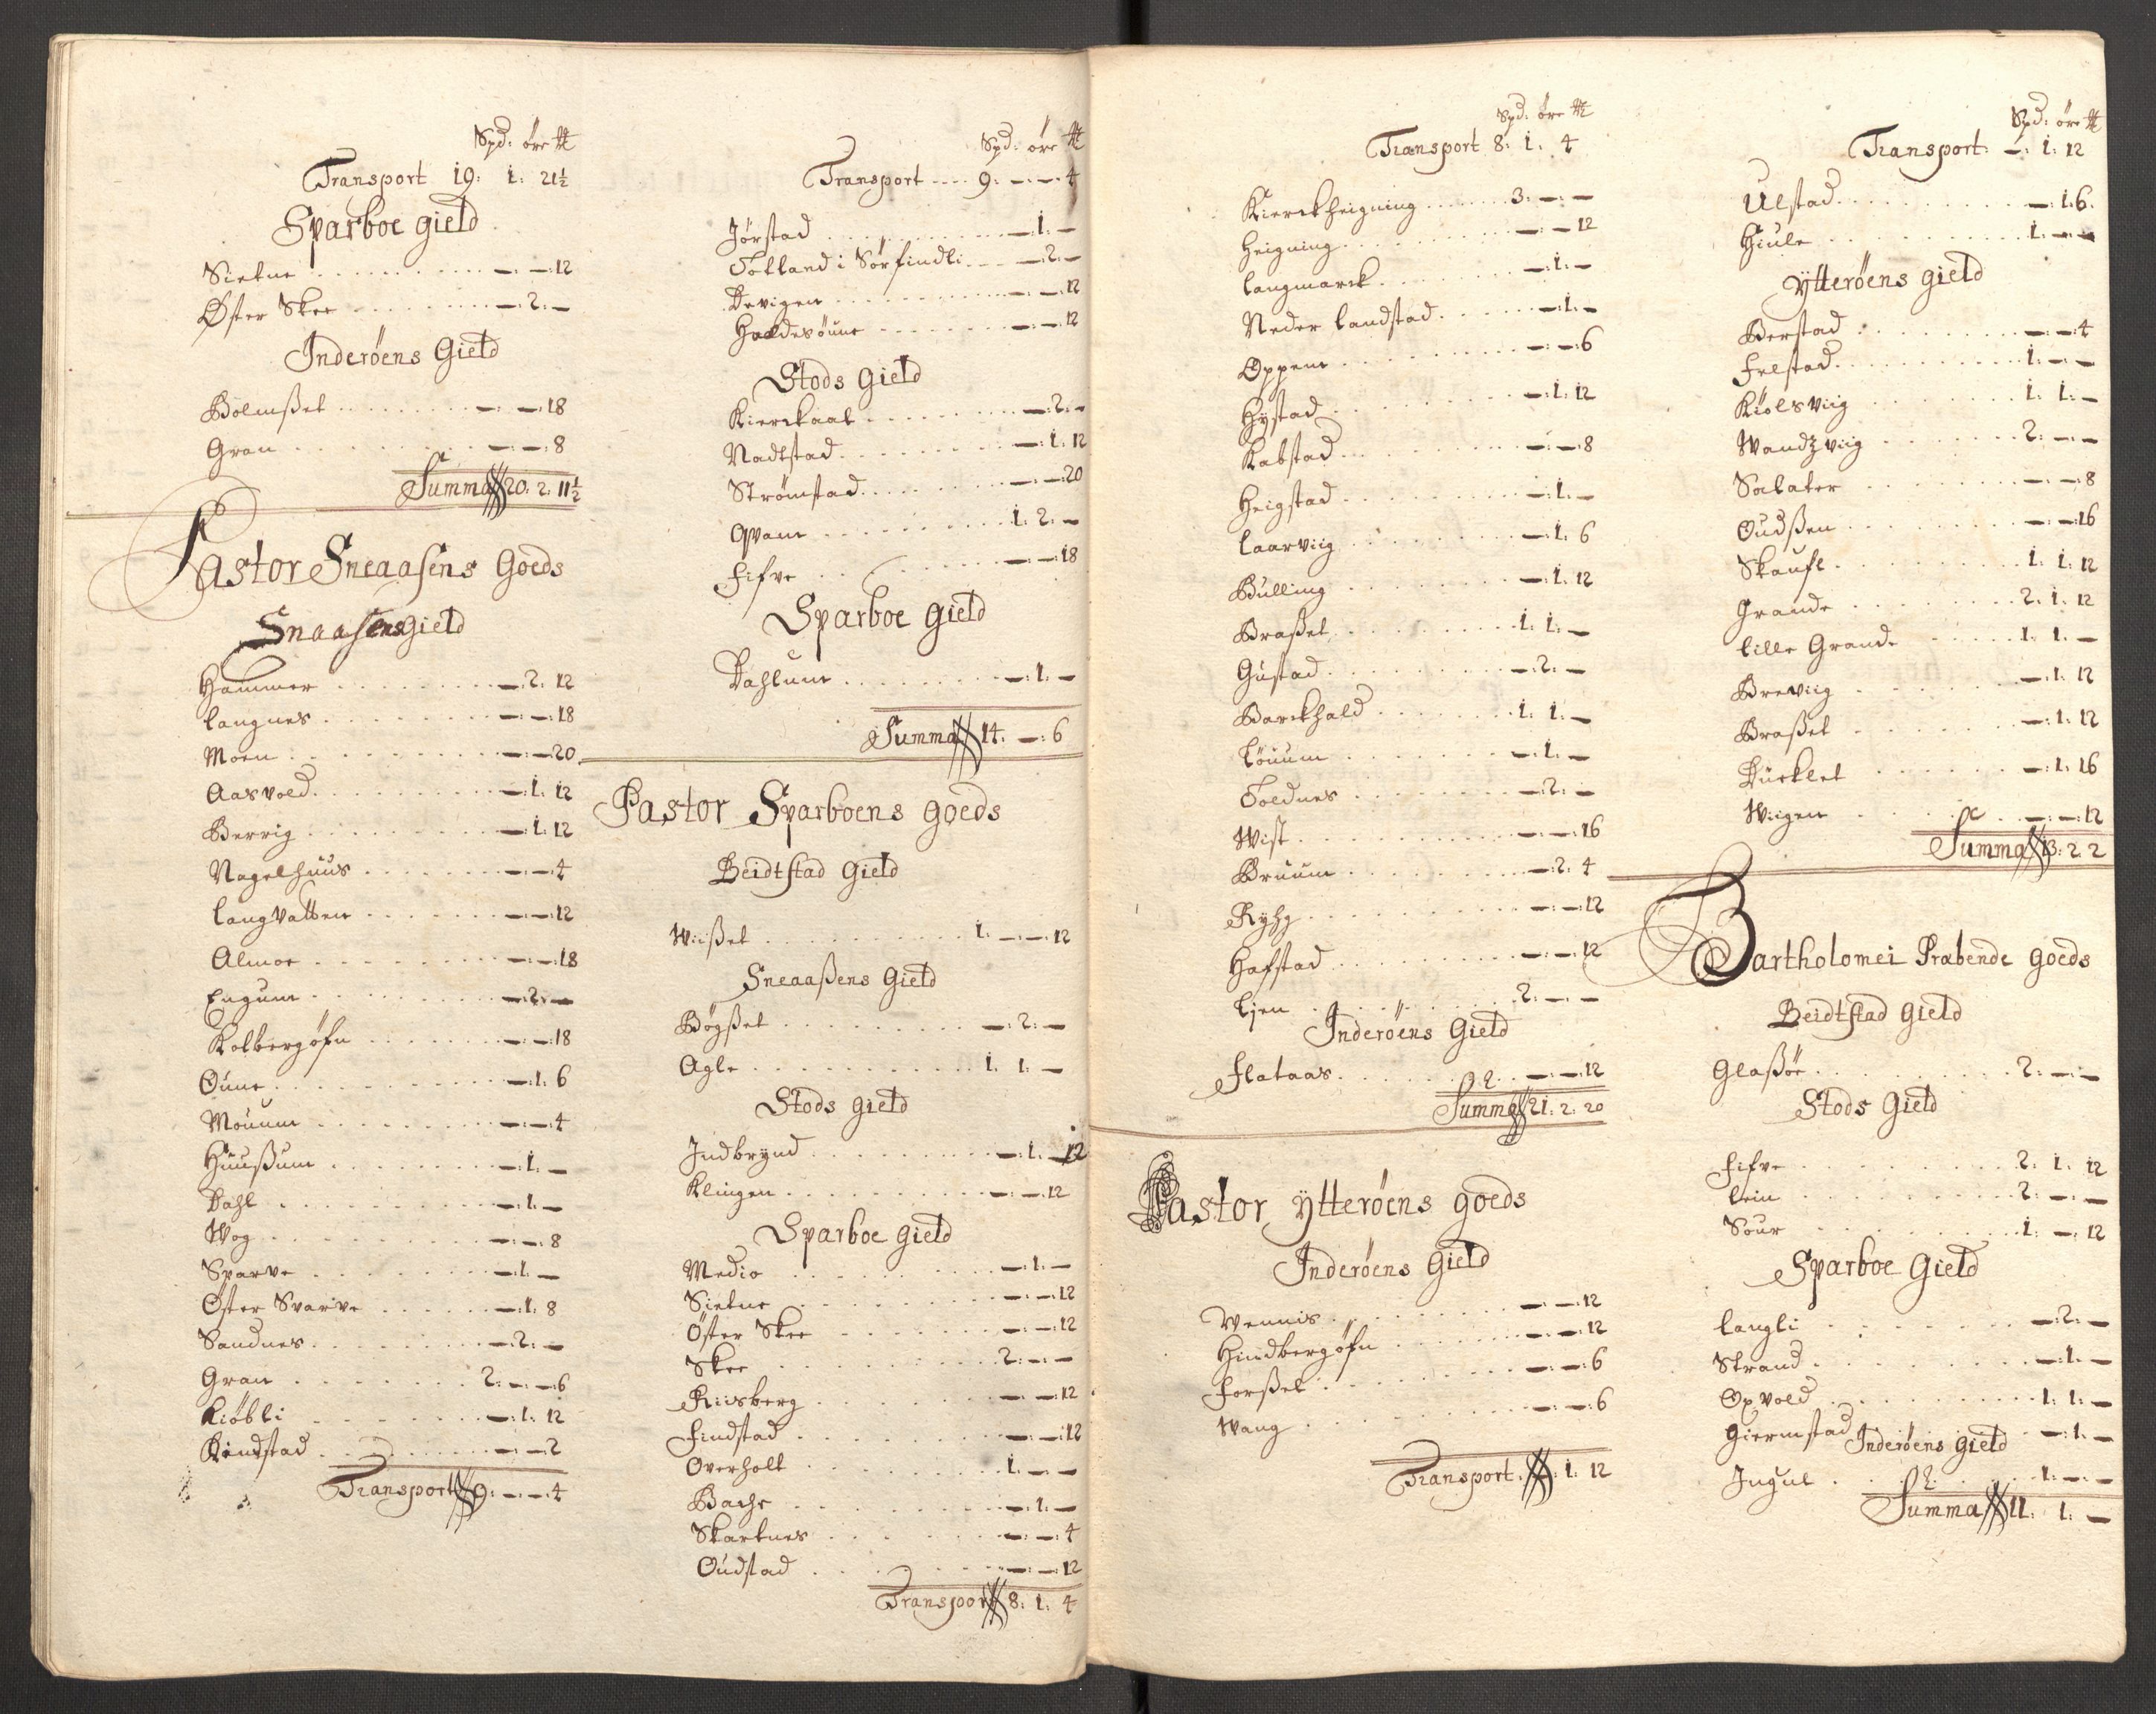 Spd: öre ₶
Transport 19: 1: 21½
Sparboe gield
Sietne — — 12
Øster Skee — 2: —
Inderöens Gield
Bolmßet — — 18
Gran — — 8
Summa 20: 2: 11½
Pastor Sneaasens Goeds
Snaasens gield
Hammer — 2: 12
Langnes — — 18
Moen — — 20
Aasvold — 1: 12
Berrig — 1: 12
Nagelhuus — — 4
Langvatten — — 12
Almoe — — 18
Engum — 2: —
Kolbergöfn — — 18
Oune — 1: 6
Mouum — — 4
Huußum — 1: —
Dahl — 1: —
Wog — — 8
Svarve — 1: —
Öster Svarve — 1: 8
Sandnes — 2: —
Gran 2: — 6
Kiöbli — 1: 12
Kindstad — — 2
Transport 9: — — 4
Spd: öre ₶
Transport 9: — — 4
Jörstad — 1: —
Totland i Sörfindli — 2: —
Devigen — — 12
Haldesöune — — 12
Stods Gield
Kierckaal — 2: —
Nadlstad — 1: 12
Strömstad — — 20
Qvam 1: 2: —
Fifve — — 18
Sparboe Gield
Dahlum — 1: —
Summa 14: — 6
Pastor Sparboens goeds
Beidtstad Gield
Wiißet 1: — — 12
Sneaaßens Gield
Bögßet — 2: —
Agle 1: 1: —
Stods gield
Indbrynd — 1: 12
Klingen — — 12
Sparboe gield
Medio — 1: —
Sietne — — 12
Öster Skee — — 12
Skee 2: — —
Riisberg — — 12
Findstad — — 12
Overholt 1: — —
Bache — 1: —
Skartnes — — 4
Oudstad — — 12
Transport 8: 1: 4
Spd: öre ₶
Transport 8: 1: 4
Kierckheigning 3: — —
Heigning — — 12
Langmarck — 1: —
Neder Landstad — 1: —
Oppem — — 6
Hystad — 1: 12
Kabstad — — 8
Heigstad — 1: —
Laarviig — 1: 6
Bulling — 1: 12
Braßet 1: 1: —
Gustad — 2: —
Barckhald 1: 1: —
Löuum — 1: —
Toldnes — 2: —
Wist — — 16
Bruum — 2: 4
Ryhg — — 12
Hafstad — — 12
Lien 2: — —
Inderöens Gield
Flataas — — 12
Summa 21: 2: 20
Pastor Ytteröens goeds
Inderöens Gield
Vennis — — 12
Hindbergöfn — — 12
Forßet — — 6
Wang — — 6
Transport — 1: 12
Spd: öre ₶
Transport — 1: 12
Ulstad — 1: 6
Hiule 1: — —
Ytteröens gield
Berstad — — 4
Felstad 1: — —
Kiölsviig 1: 1: —
Wandzviig 2: — —
Salater — — 8
Oudßen — — 16
Skaufl 1: 1: 12
Grande 2: 1: 12
Lille Grande 1: 1: —
Breviig — 1: 12
Braßet — 1: 12
Dürklet — 1: 16
Wiigen — — 12
Summa 13: 2: 2
Bartholomei Præbende goeds
Beidtstad gield
Glaßöe 2: — —
Stods Gield
Fifve 2: 1: 12
Lein 2: — —
Sour 1: — 12
Sparboe Gield
Langli — 2: —
Strand — 1: —
Opvold 1: 1: —
Giermstad — 1: —
Inderöens gield
Jugul 1: — —
Summa 11: 1: —